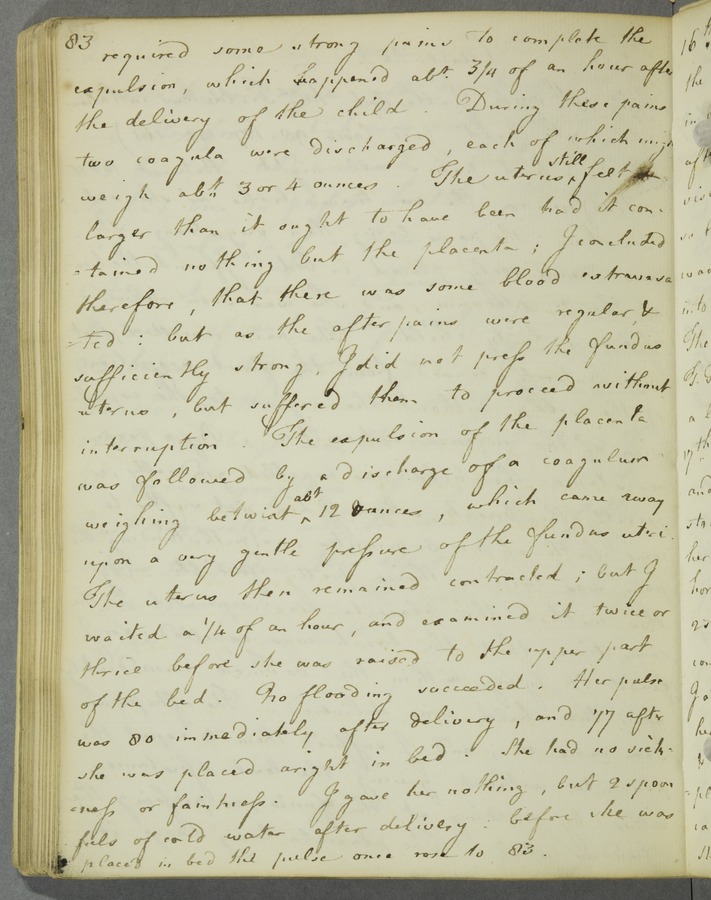 83
required some strong pains to complete the
expulsion, which happened abt. 3/4 of an hour after
the delivery of the child. During these pains
two coagula were discharged, each of which
weigh abt. 3 or 4 ounces. The uterus still felt
larger than it ought to have been had it con-
-tained nothing but the placenta; I concluded
therefore, that there was some blood extravasa
-ted: but as the after pains were regular, &
sufficiently strong, I did not press the fundus
uterus, but suffered them to proceed without
interruption. The expulsion of the placenta
was followed by a discharge of a coagulum
weighing betwixt abt 12 ounces, which came away
upon a very gentle pressure of the fundus uteri.
The uterus then remained contracted; but I
waited a 1/4 of an hour, and examined it twice or
thrice before she was raised to the upper part
of the bed. No flooding succeeded. Her pulse
was 80 immediately after delivery, and 77 after
she was placed aright in bed. She had no sick-
-ness or faintness. I gave her nothing, but 2 spoon
fuls of cold water after delivery: before she was
placed in bed the pulse once rose to 83.